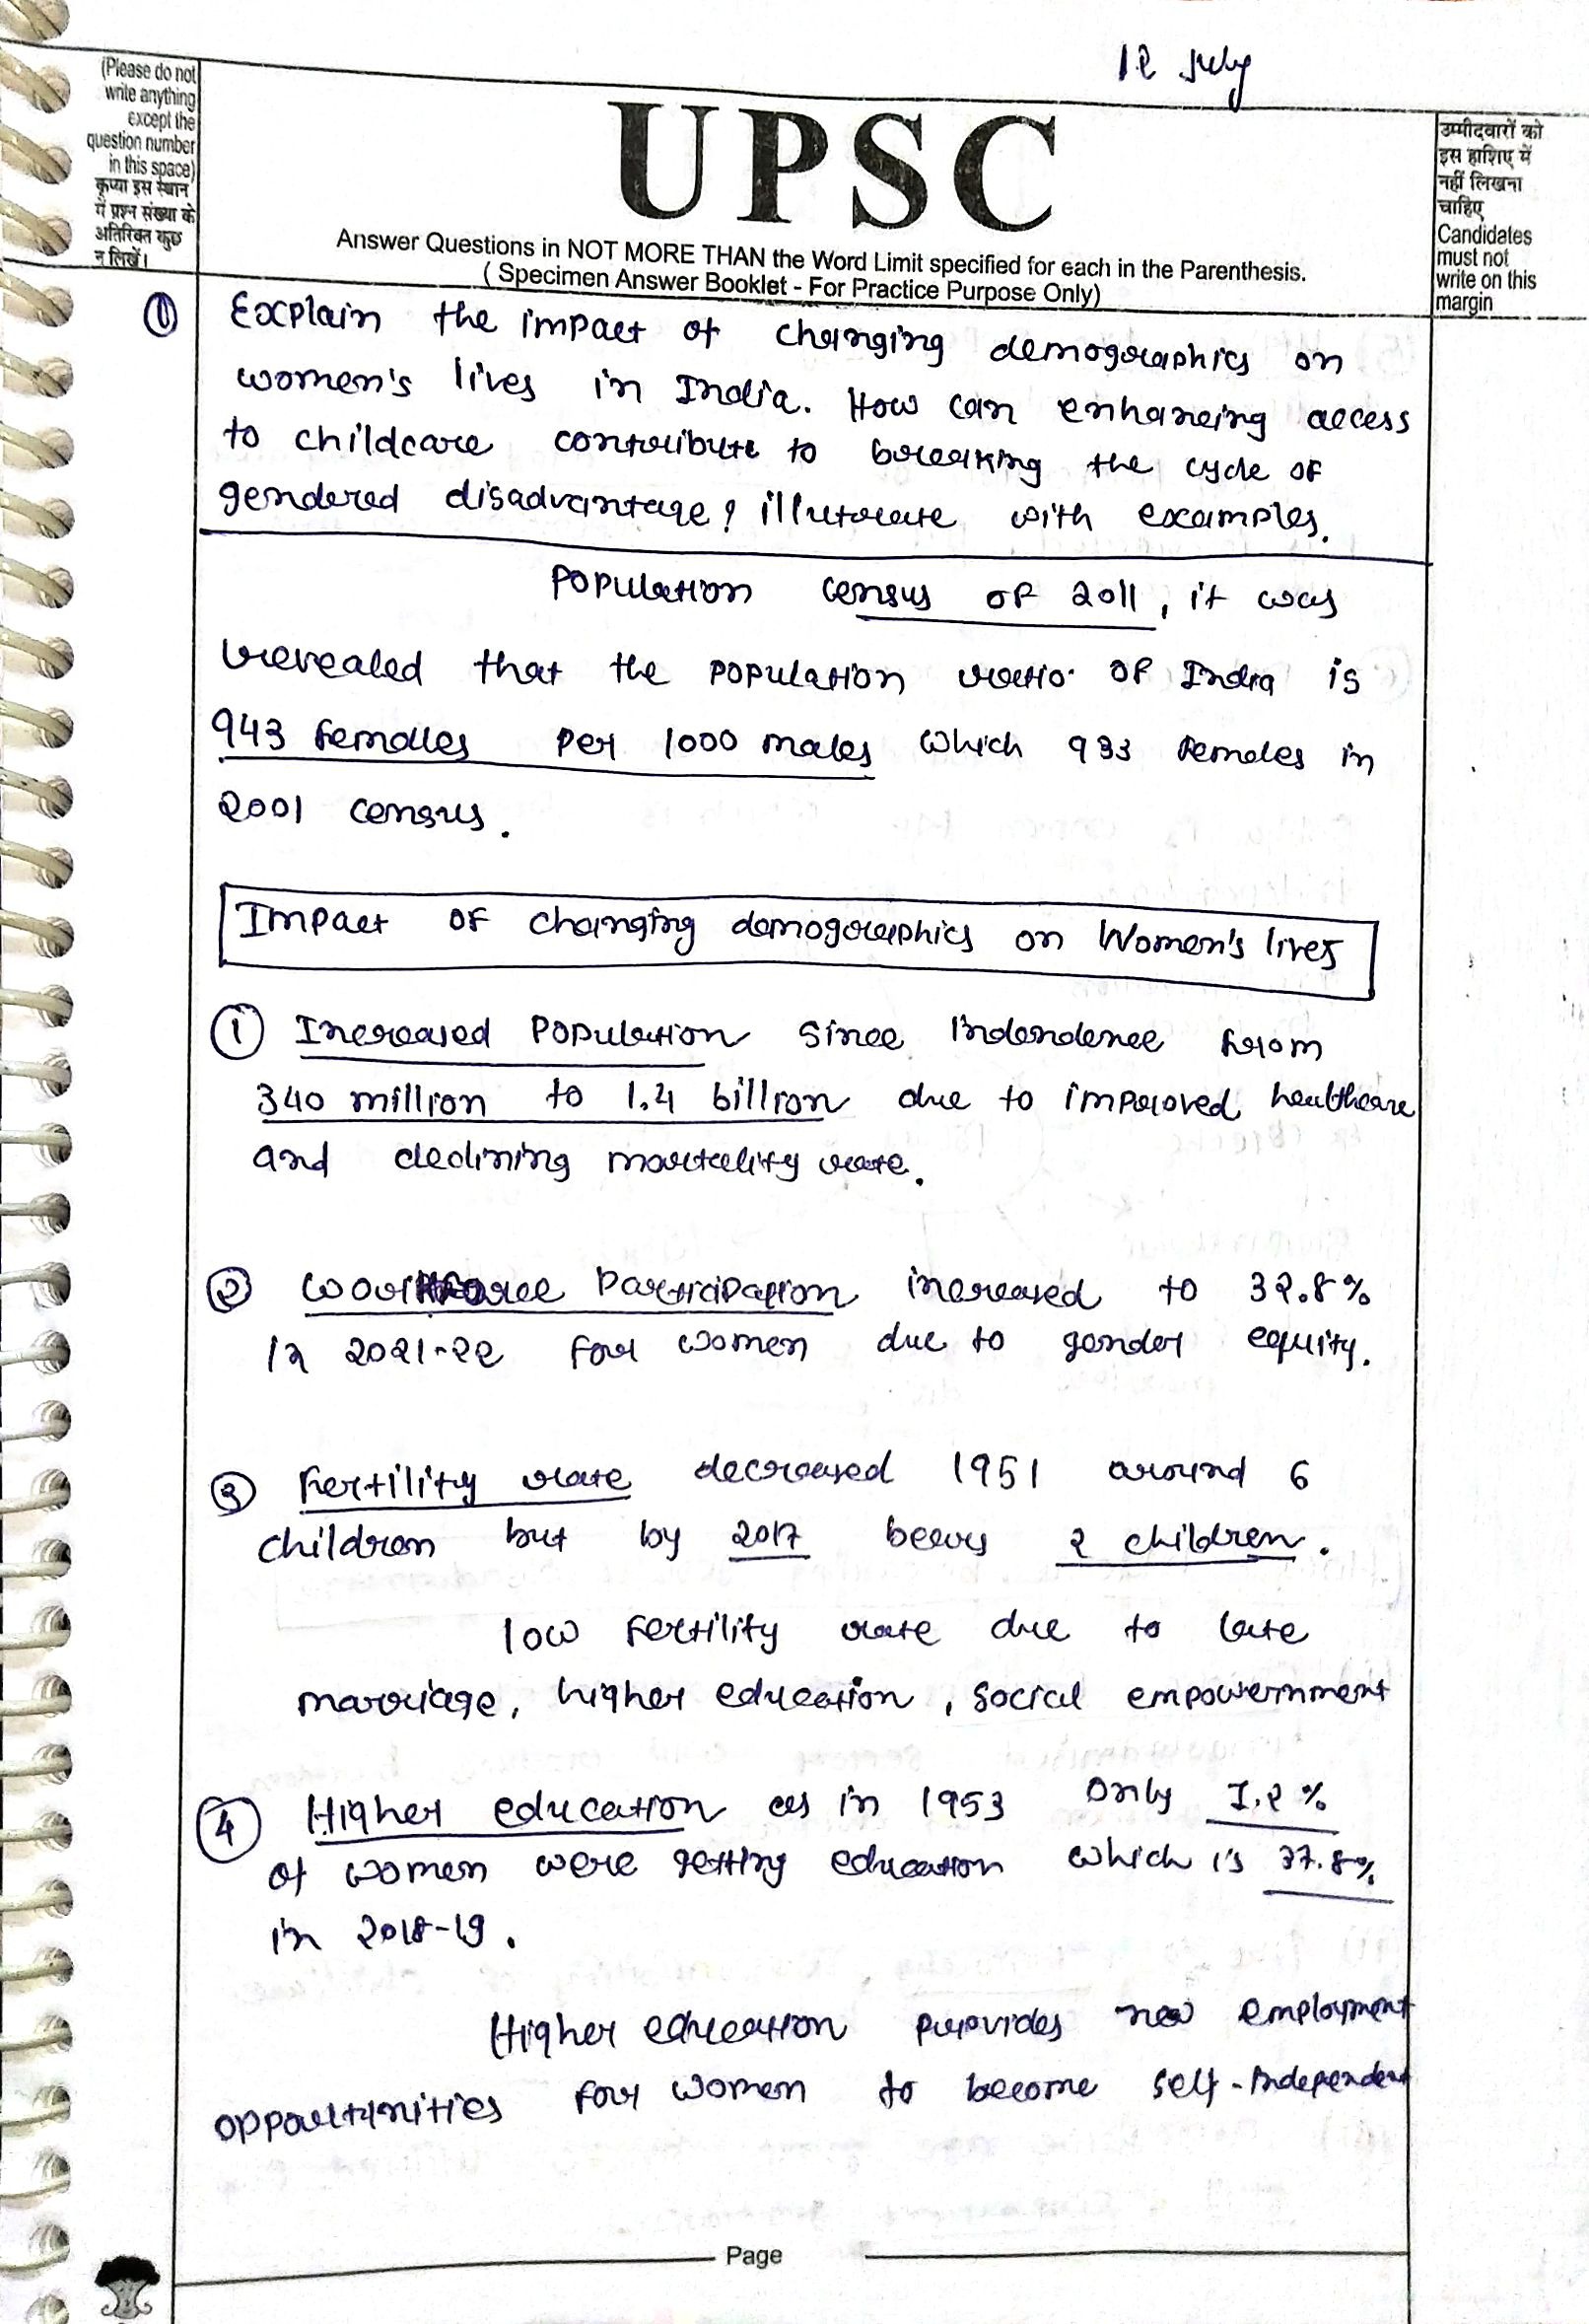 12 July
(Please do not
write anything
except the
question number
in this space)
कृप्या इस स्थान
में प्रश्न संख्या के
अतिरिक्त कुछ
न लिखें।
UPSC
Answer Questions in NOT MORE THAN the Word Limit specified for each in the Parenthesis.
( Specimen Answer Booklet - For Practice Purpose Only)
उम्मीदवारों को
इस हाशिए में
नहीं लिखना
चाहिए
Candidates
must not
write on this
margin
① Explain the impact of changing demographics on
women's lives in India. How can enhancing access
to childcare contribute to breaking the cycle of
gendered disadvantage? illutorate with examples.
Population census of 2011, it was
revealed that the population ratio of India is
943 females per 1000 males which 933 females in
2001 census.
Impact of changing demographics on Women's lives
① Increased Population since Indendence from
340 million to 1.4 billion due to improved healthcare
and declining mortality rate.
② Workforce Participation increased to 32.8%
in 2021-22 for women due to gender equity.
③ Fertility rate decreased 1951 around 6
children but by 2017 bears 2 children.
low fertility rate due to late
marriage, higher education, social empowernment
④ Higher education as in 1953 only 1.2%
of women were getting education which is 37.8%
in 2018-19.
Higher education provides new employment
opportunities for women to become self-independent
Page